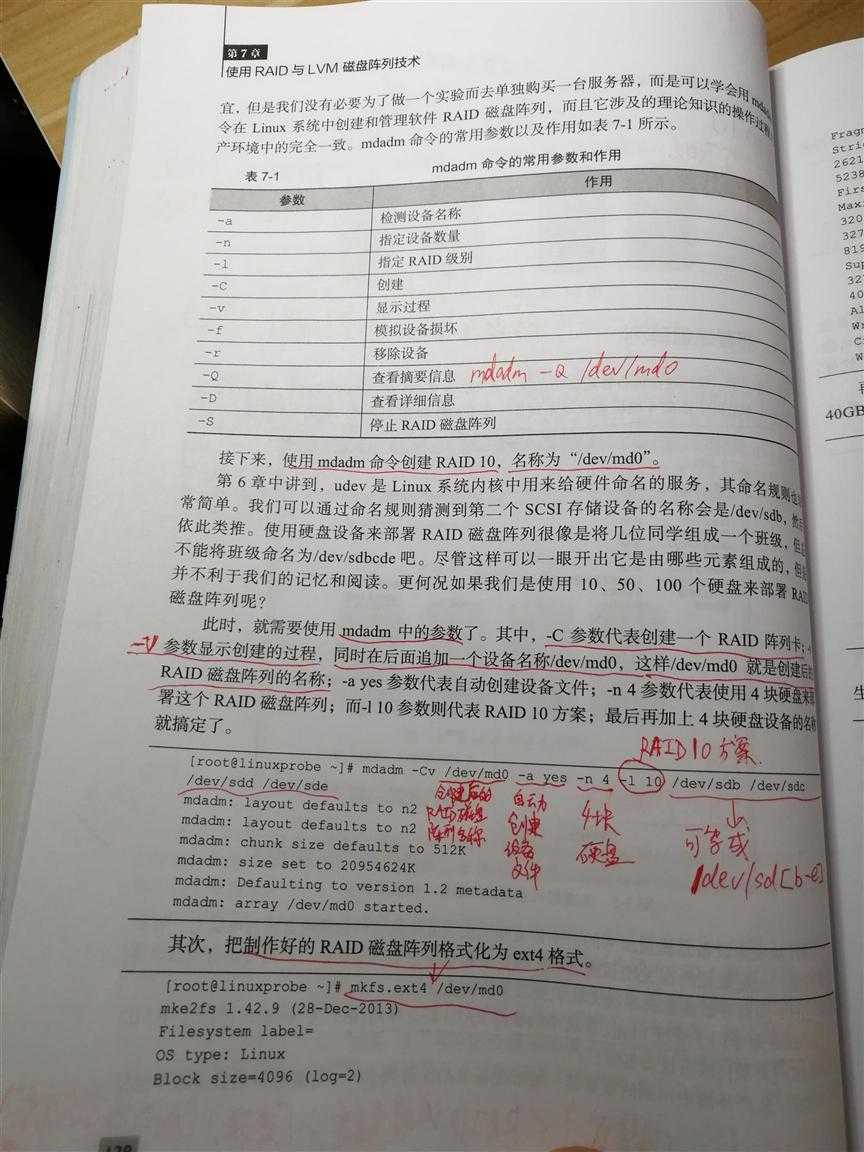 第7章
使用 RAID 与 LVM 磁盘阵列技术
宜，但是我们没有必要为了做一个实验而去单独购买一台服务器，而是可以学会用 mdadm
令在 Linux 系统中创建和管理软件 RAID 磁盘阵列，而且它涉及的理论知识的操作过程
产环境中的完全一致。mdadm 命令的常用参数以及作用如表 7-1 所示。
表 7-1 mdadm 命令的常用参数和作用
参数 作用
-a 检测设备名称
-n 指定设备数量
-l 指定 RAID 级别
-C 创建
-v 显示过程
-f 模拟设备损坏
-r 移除设备
-Q 查看摘要信息 mdadm -Q /dev/md0
-D 查看详细信息
-S 停止 RAID 磁盘阵列
接下来，使用 mdadm 命令创建 RAID 10，名称为“/dev/md0”。
第 6 章中讲到，udev 是 Linux 系统内核中用来给硬件命名的服务，其命名规则也
常简单。我们可以通过命名规则猜测到第二个 SCSI 存储设备的名称会是/dev/sdb，然
依此类推。使用硬盘设备来部署 RAID 磁盘阵列很像是将几位同学组成一个班级，但
不能将班级命名为/dev/sdbcde 吧。尽管这样可以一眼开出它是由哪些元素组成的，但
并不利于我们的记忆和阅读。更何况如果我们是使用 10、50、100 个硬盘来部署 RAID
磁盘阵列呢？
此时，就需要使用 mdadm 中的参数了。其中，-C 参数代表创建一个 RAID 阵列卡；
-v 参数显示创建的过程，同时在后面追加一个设备名称/dev/md0，这样/dev/md0 就是创建后的
RAID 磁盘阵列的名称；-a yes 参数代表自动创建设备文件；-n 4 参数代表使用 4 块硬盘来部
署这个 RAID 磁盘阵列；而-l 10 参数则代表 RAID 10 方案；最后再加上 4 块硬盘设备的名称
就搞定了。
RAID 10 方案
[root@linuxprobe ~]# mdadm -Cv /dev/md0 -a yes -n 4 -l 10 /dev/sdb /dev/sdc
/dev/sdd /dev/sde
创建后的
RAID磁盘
阵列名称
自动
创建
设备
文件
4块
硬盘
可写成
/dev/sd[b-e]
mdadm: layout defaults to n2
mdadm: layout defaults to n2
mdadm: chunk size defaults to 512K
mdadm: size set to 20954624K
mdadm: Defaulting to version 1.2 metadata
mdadm: array /dev/md0 started.
其次，把制作好的 RAID 磁盘阵列格式化为 ext4 格式。
[root@linuxprobe ~]# mkfs.ext4 /dev/md0
mke2fs 1.42.9 (28-Dec-2013)
Filesystem label=
OS type: Linux
Block size=4096 (log=2)
Fragm
Stri
2621
5238
Firs
Max
320
327
819
Sup
32
40
Al
Wr
C
W
40GB